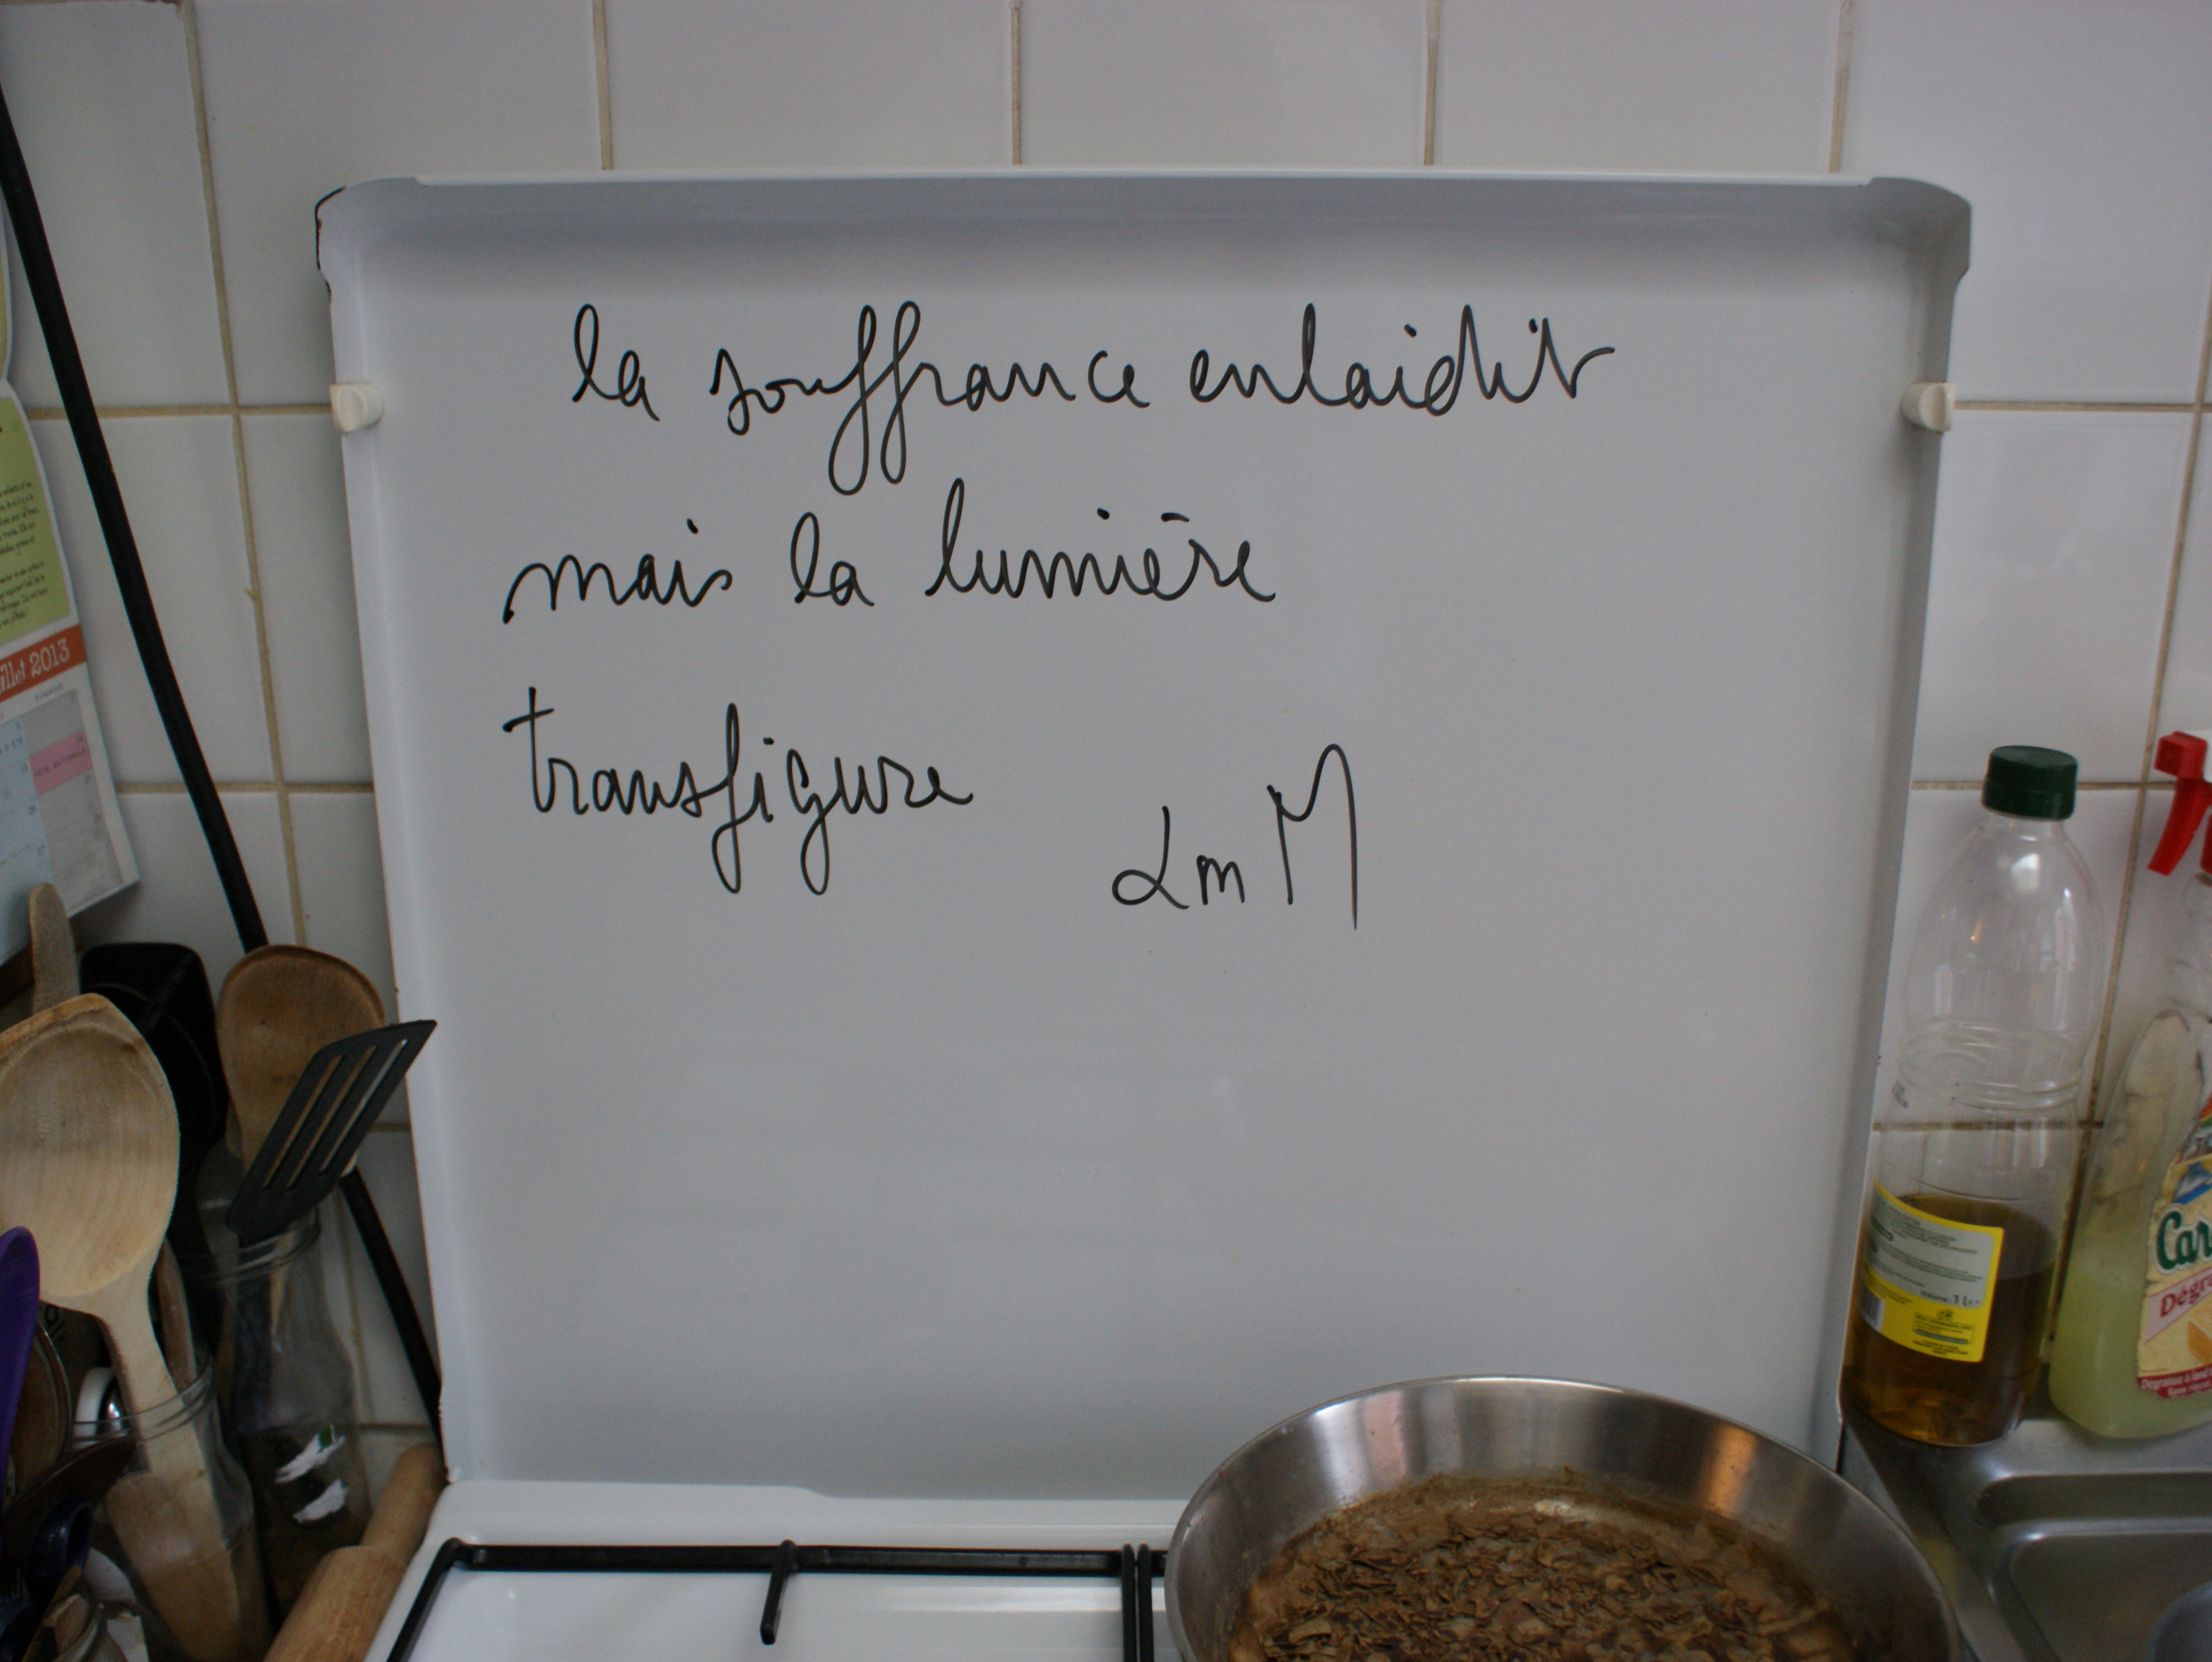 la souffrance enlaidit
mais la lumière
transfigure
LmM
illet 2013
Volume : 1 L
Car
Dégra